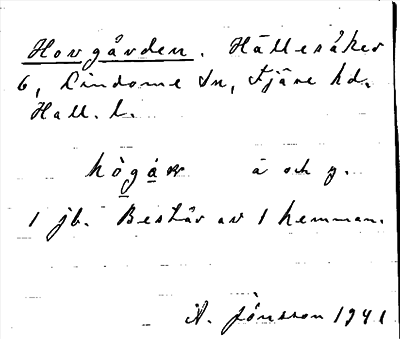 Hovgården. Hällesåker
6, Lindome sn, Fjäre hd.
Hall. l.
hògáɽ å och y.
1 jb. Består av 1 hemman.
A. Jönsson 1941